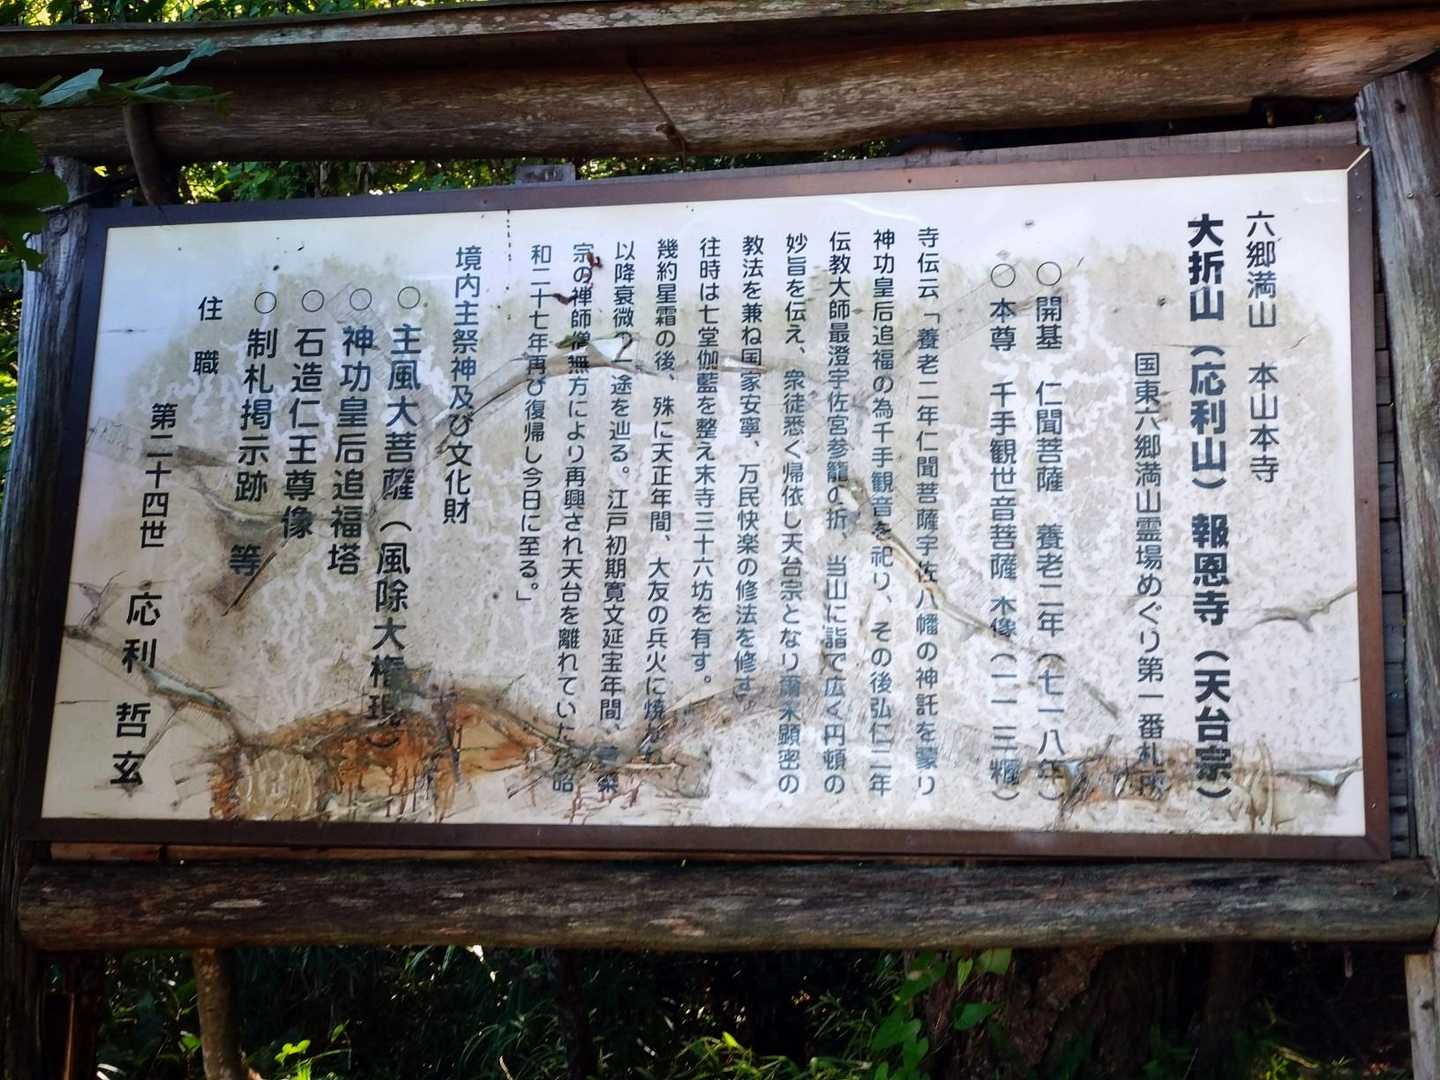 六郷満山 本山本寺
大折山(応利山)報恩寺(天台宗)
国東六郷満山霊場めぐり第一番札所
○開基 仁聞菩薩 養老二年(七一八年)
○本尊 千手観世音菩薩 木像(一一三糎)
寺伝云「養老二年仁聞菩薩宇佐八幡の神託を蒙り
神功皇后追福の為千手観音を祀り、その後弘仁二年
伝教大師最澄宇佐宮参籠の折、当山に詣で広く円頓の
妙旨を伝え、衆徒悉く帰依し天台宗となり爾来顕密の
教法を兼ね国家安寧、万民快楽の修法を修す。
往時は七堂伽藍を整え末寺三十六坊を有す。
幾約星霜の後、殊に天正年間、大友の兵火に焼かれ
以降衰微の一途を辿る。江戸初期寛文延宝年間、
宗の禅師僧無方により再興され天台を離れていたが昭
和二十七年再び復帰し今日に至る。」
境内主祭神及び文化財
○主風大菩薩(風除大権現)
○神功皇后追福塔
○石造仁王尊像
○制札掲示跡 等
住職
第二十四世 応利 哲玄